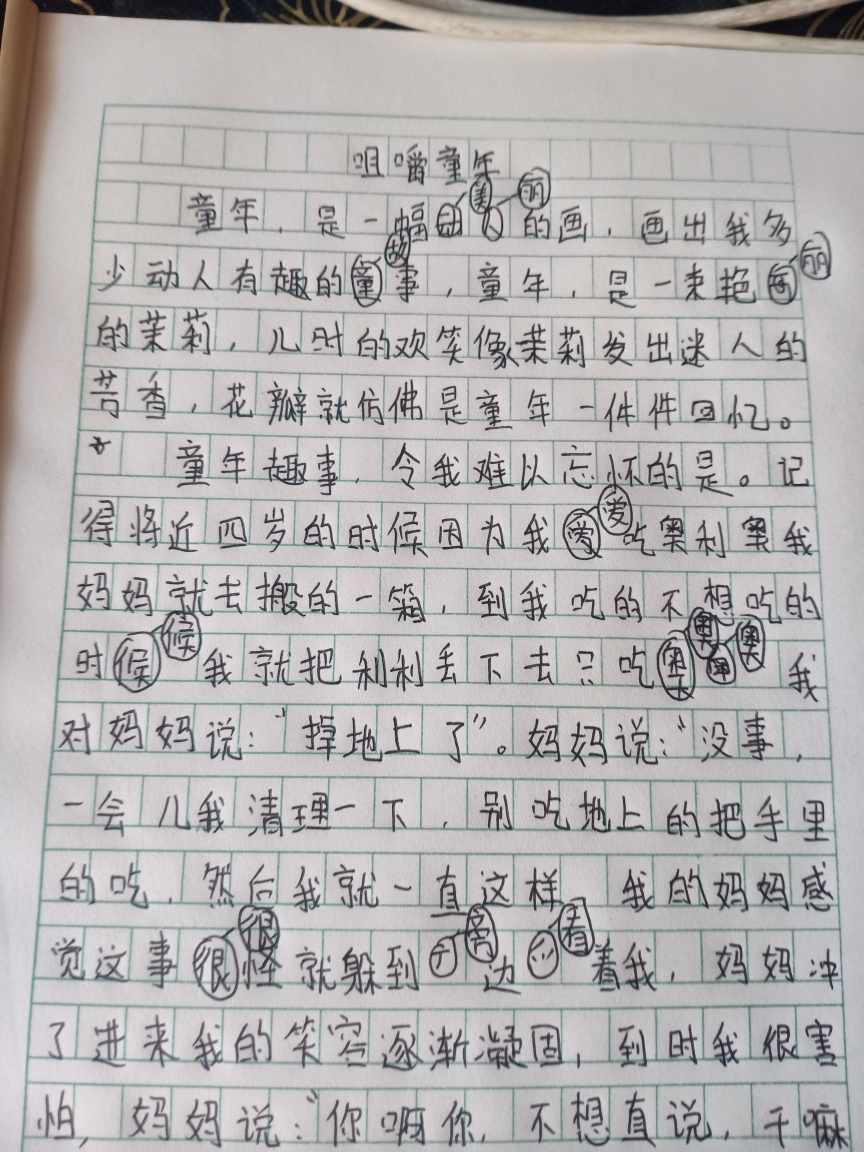 咀嚼童年
童年，是一幅美丽的画，画出我多
少动人有趣的故事，童年，是一束艳丽
的茉莉，儿时的欢笑像茉莉发出迷人的
芳香，花瓣就仿佛是童年一件件回忆。
童年趣事，令我难以忘怀的是。记
得将近四岁的时候因为我爱吃奥利奥我
妈妈就去搬的一箱，到我吃的不想吃的
时候我就把利利丢下去只吃奥奥 我
对妈妈说：“掉地上了”。妈妈说：“没事，
一会儿我清理一下，别吃地上的把手里
的吃，然后我就一直这样 我的妈妈感
觉这事很怪就躲到旁边看着我，妈妈冲
了进来我的笑容逐渐凝固，到时我很害
怕，妈妈说：“你啊你，不想直说，干嘛